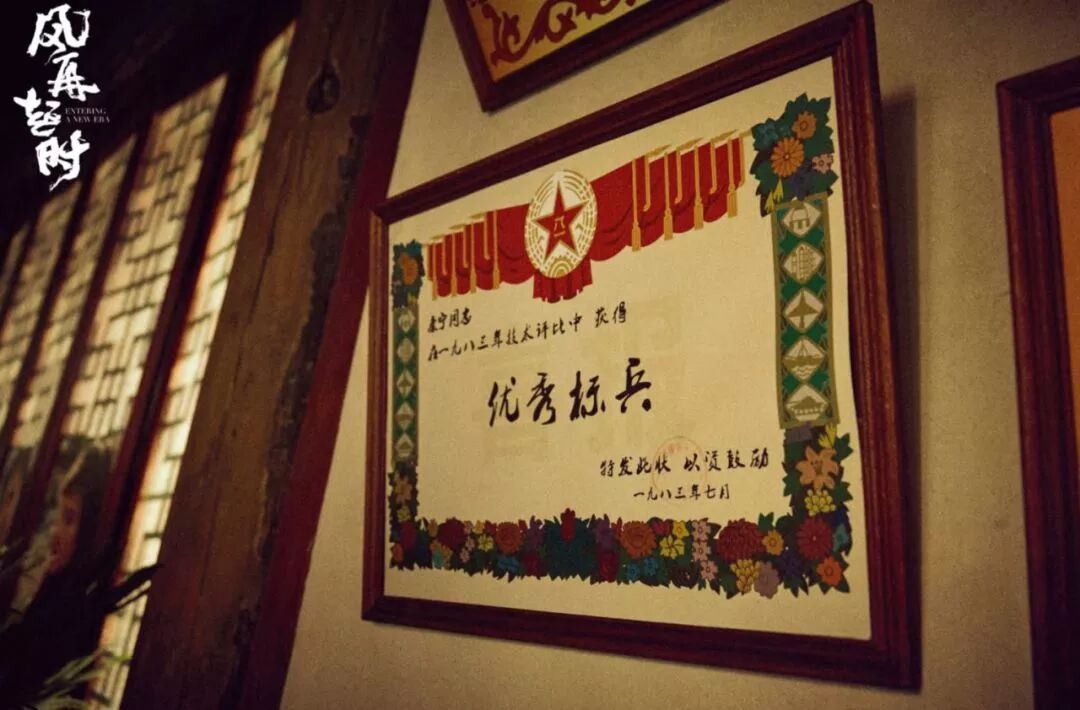 风再起时
ENTERING
A NEW ERA
八一
康宁同志
在一九八三年技术评比中 获得
优秀标兵
特发此状 以资鼓励
一九八三年七月